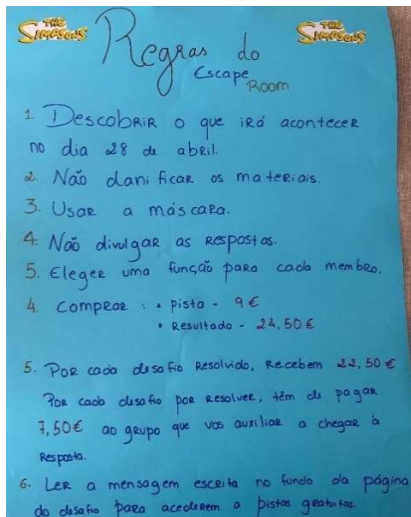 THE SIMPSONS
THE SIMPSONS
Regras do
Escape Room
1. Descobrir o que irá acontecer
no dia 28 de abril.
2. Não danificar os materiais.
3. Usar a máscara.
4. Não divulgar as respostas.
5. Eleger uma função para cada membro.
4. Comprar : • Pista - 9€
• Resultado - 24,50€
5. Por cada desafio resolvido, recebem 22,50€
Por cada desafio por resolver, têm de pagar
7,50€ ao grupo que vos auxiliar a chegar à
resposta.
6. Ler a mensagem escrita no fundo da página
do desafio para acederem a pistas gratuitas.